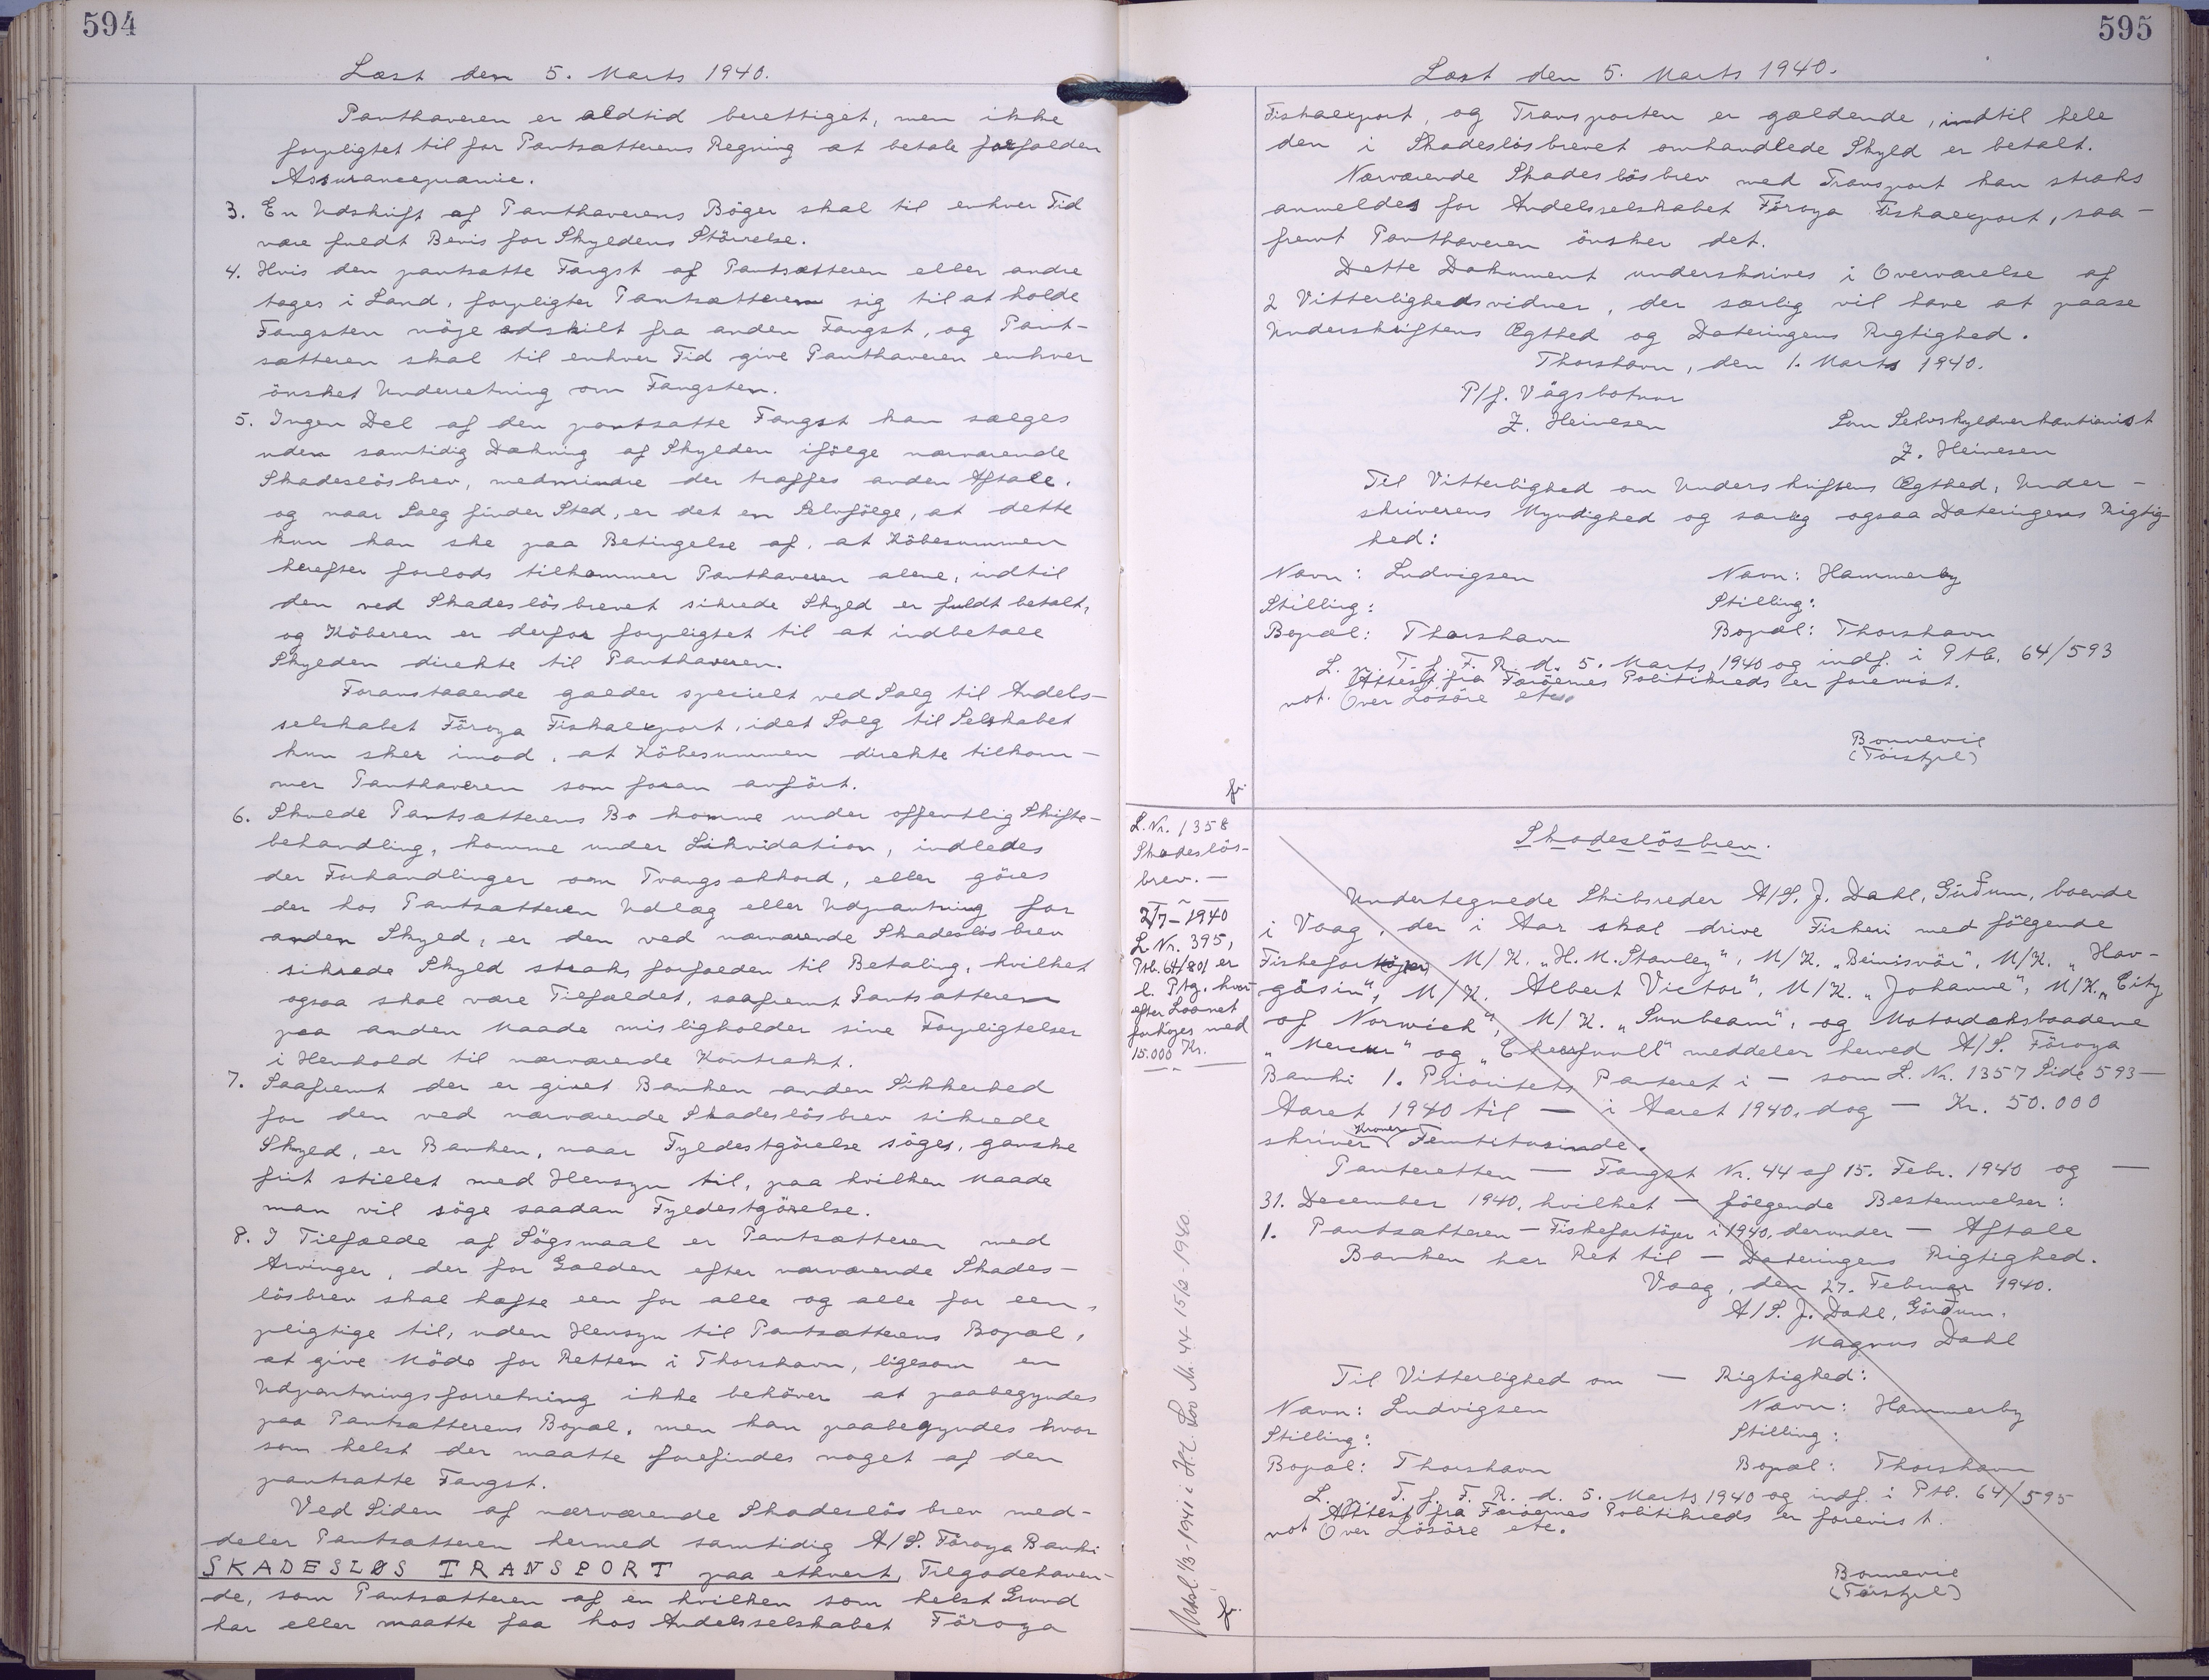 594
Læst den 5. Marts 1940.
Panthaveren er aldtid berettiget, men ikke
forpligtet til for Pantsætterens Regning at betale forfalden
Assurancepræmie.
3. En Udskrift af Panthaverens Böger skal til enhver Tid
være fuldt Bevis for Skyldens Störrelse.
4. Hvis den pantsatte Fangst af Pantsætteren eller andre
tages i Land, forpligter Pantsætteren sig til at holde
Fangsten nöje adskilt fra anden Fangst, og Pant-
sætteren skal til enhver Tid give Panthaveren enhver
önsket Underretning om Fangsten.
5. Ingen Del af den pantsatte Fangst kan sælges
uden samtidig Dækning af Skylden ifölge nærværende
Skadeslösbrev, medmindre der træffes anden Aftale,
og naar Salg finder Sted, er det en Selvfölge, at dette
kun kan ske paa Betingelse af, at Köbesummen
herefter forlods tilkommer Panthaveren alene, indtil
den ved Skadeslösbrevet sikrede Skyld er fuldt betalt,
og Köberen er derfor forpligtet til at indbetale
Skylden direkte til Panthaveren.
Foranstaaende gælder specielt ved Salg til Andels-
selskabet Föroya Fiskaexport, idet Salg til Selskabet
kun sker imod, at Köbesummen direkte tilkom-
mer Panthaveren som foran anfört.
6. Skulde Pantsætterens Bo komme under offentlig Skifte-
behandling, komme under Likvidation, indledes
der Forhandlinger om Tvangsakkord, eller göres
der hos Pantsætteren Udlæg eller Udpantning for
anden Skyld, er den ved nærværende Skadeslösbrev
sikrede Skyld straks forfalden til Betaling, hvilket
ogsaa skal være Tilfældet, saafremt Pantsætteren
paa anden Maade misligholder sine Forpligtelser
i Henhold til nærværende Kontrakt.
7. Saafremt der er givet Banken anden Sikkerhed
for den ved nærværende Skadeslösbrev sikrede
Skyld, er Banken, naar Fyldestgörelse söges, ganske
frit stillet med Hensyn til, paa hvilken Maade
man vil söge saadan Fyldestgörelse.
8. I Tilfælde af Sögsmaal er Pantsætteren med
Arvinger, der for Gælden efter nærværende Skades-
lösbrev skal hæfte een for alle og alle for een,
pligtige til, uden Hensyn til Pantsætterens Bopæl,
at give Möde for Retten i Thorshavn, ligesom en
Udpantningsforretning ikke behöver at paabegyndes
paa Pantsætterens Bopæl, men kan paabegyndes hvor
som helst der maatte forefindes noget af den
pantsatte Fangst.
Ved Siden af nærværende Skadeslösbrev med-
deler Pantsætteren hermed samtidig A/S. Föroya Banki
SKADESLØS TRANSPORT paa ethvert Tilgodehaven-
de, som Pantsætteren af en hvilken som helst Grund
har eller maatte faa hos Andelsselskabet Föroya
595
Læst den 5. Marts 1940.
Fiskaexport, og Transporten er gældende, indtil hele
den i Skadeslösbrevet omhandlede Skyld er betalt.
Nærværende Skadeslösbrev med Transport kan straks
anmeldes for Andelsselskabet Föroya Fiskaexport, saa-
fremt Panthaveren önsker det.
Dette Dokument underskrives i Overværelse af
2 Vitterlighedsvidner, der særlig vil have at paase
Underskriftens Ægthed og Dateringens Rigtighed.
Thorshavn, den 1. Marts 1940.
P/f. Vágsbotnur
Z. Heinesen
Som Selvskyldnerkautionist
Z. Heinesen
Til Vitterlighed om Underskriftens Ægthed, Under-
skriverens Myndighed og særlig ogsaa Dateringens Rigtig-
hed:
Navn: Ludvigsen
Navn: Hammerby
Stilling:
Stilling:
Bopæl: Thorshavn
Bopæl: Thorshavn
L. p. T. f. F. R. d. 5. Marts 1940 og indf. i Ptb. 64/593
Attest fra Færöernes Politikreds er forevist.
not. Over Lösöre etc.
Bonnevie
(Törstzel)
fr.
L. Nr. 1358
Skadeslös-
brev. —
2/7-1940
L. Nr. 395,
Ptb. 64/801 er
l. Ptg., hvor-
efter Laanet
forhöjes med
15.000 Kr.
Skadeslösbrev.
Undertegnede Skibsreder A/S. J. Dahl, Görðum, boende
i Vaag, der i Aar skal drive Fiskeri med fölgende
Fiskefartöjer M/K. „H. M. Stanley", M/K. „Beinisvör", M/K. „Hav-
gásin", M/K. „Albert Victor", M/K. „Johanne", M/K. „City
of Norwich", M/K. „Sunbeam", og Motordæksbaadene
„Mercur" og „Cheerfull" meddeler herved A/S. Föroya
Banki 1. Prioritets Panteret i — som L. Nr. 1357 Side 593 —
Aaret 1940 til — i Aaret 1940, dog — Kr. 50.000
skriver Kroner Femtitusinde.
Panteretten — Fangst Nr. 44 af 15. Febr. 1940 og —
31. December 1940, hvilket — fölgende Bestemmelser:
1. Pantsætteren — Fiskefartöjer i 1940, derunder — Aftale
Banken har Ret til — Dateringens Rigtighed.
Vaag, den 27. Februar 1940.
A/S. J. Dahl, Görðum.
Magnus Dahl
Til Vitterlighed om — Rigtighed:
Navn: Ludvigsen
Navn: Hammerby
Stilling:
Stilling:
Bopæl: Thorshavn
Bopæl: Thorshavn
L. p. T. f. F. R. d. 5. Marts 1940 og indf. i Ptb. 64/595
Attest fra Færöernes Politikreds er forevist.
not Over Lösöre etc.
Bonnevie
(Törstzel)
1/3-1941 i H. t. Lov Nr. 44 - 15/2-1940.
fr.